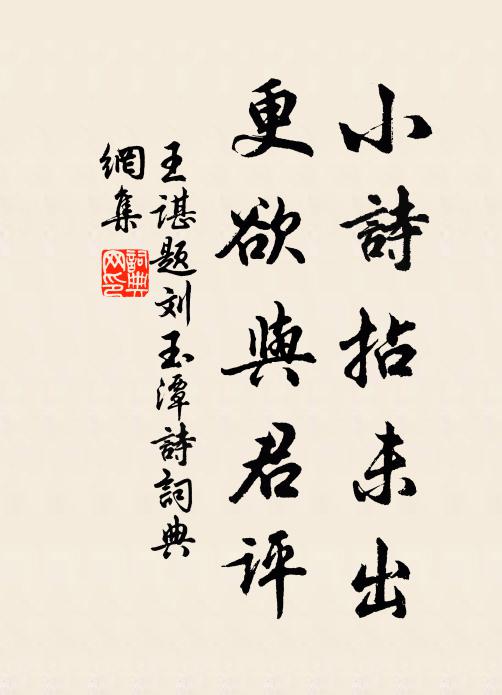 小詩拈未出
更欲與君評
王谌题刘玉潭詩詞典
網集
詞典网印